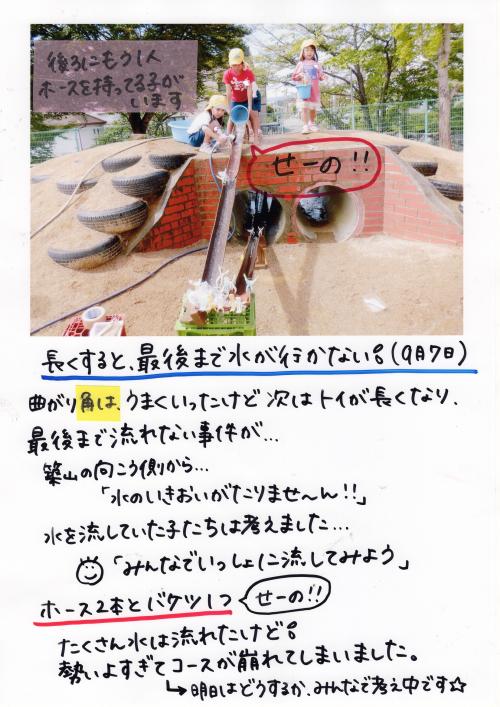 後ろにもう1人
ホースを持ってる子が
います
せーの!!
長くすると、最後まで水が行かない!(9月7日)
曲がり角は、うまくいったけど次はトイが長くなり、
最後まで流れない事件が…
築山の向こう側から…
「水のいきおいがたりませ〜ん!!」
水を流していた子たちは考えました…
「みんなでいっしょに流してみよう」
ホース2本とバケツ1つ せーの!!
たくさん水は流れたけど!
勢いよすぎてコースが崩れてしまいました。
↳明日はどうするか、みんなで考え中です☆